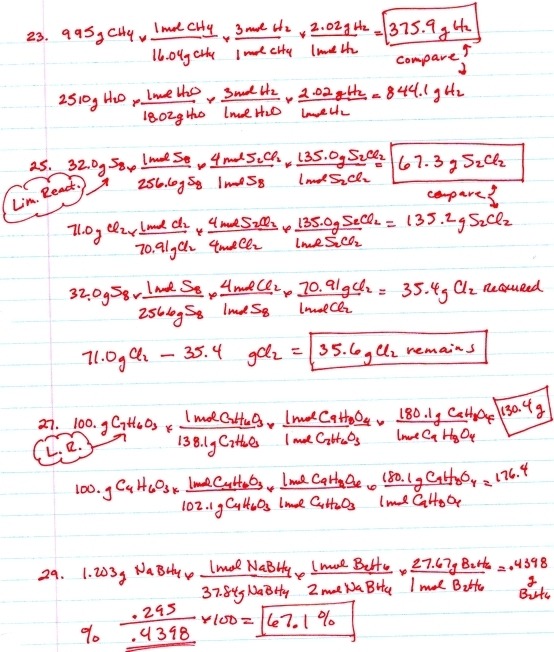 23. 995g CH4 × 1mol CH4 / 16.04g CH4 × 3mol H2 / 1mol CH4 × 2.02g H2 / 1mol H2 = 375.9g H2
compare
2510g H2O × 1mol H2O / 18.02g H2O × 3mol H2 / 1mol H2O × 2.02g H2 / 1mol H2 = 844.1g H2
25. 32.0g S8 × 1mol S8 / 256.6g S8 × 4mol S2Cl2 / 1mol S8 × 135.0g S2Cl2 / 1mol S2Cl2 = 67.3g S2Cl2
Lim. React.
compare
71.0g Cl2 × 1mol Cl2 / 70.91g Cl2 × 4mol S2Cl2 / 4mol Cl2 × 135.0g S2Cl2 / 1mol S2Cl2 = 135.2g S2Cl2
32.0g S8 × 1mol S8 / 256.6g S8 × 4mol Cl2 / 1mol S8 × 70.91g Cl2 / 1mol Cl2 = 35.4g Cl2 required
71.0g Cl2 - 35.4 g Cl2 = 35.6g Cl2 remains
27. 100. g C7H6O3 × 1mol C7H6O3 / 138.1g C7H6O3 × 1mol C9H8O4 / 1mol C7H6O3 × 180.1g C9H8O4 / 1mol C9H8O4 = 130.4g
L.R.
100. g C4H6O3 × 1mol C4H6O3 / 102.1g C4H6O3 × 1mol C9H8O4 / 1mol C4H6O3 × 180.1g C9H8O4 / 1mol C9H8O4 = 176.4
29. 1.203g NaBH4 × 1mol NaBH4 / 37.84g NaBH4 × 1mol B2H6 / 2mol NaBH4 × 27.67g B2H6 / 1mol B2H6 = .4398 g B2H6
% .295 / .4398 × 100 = 67.1%